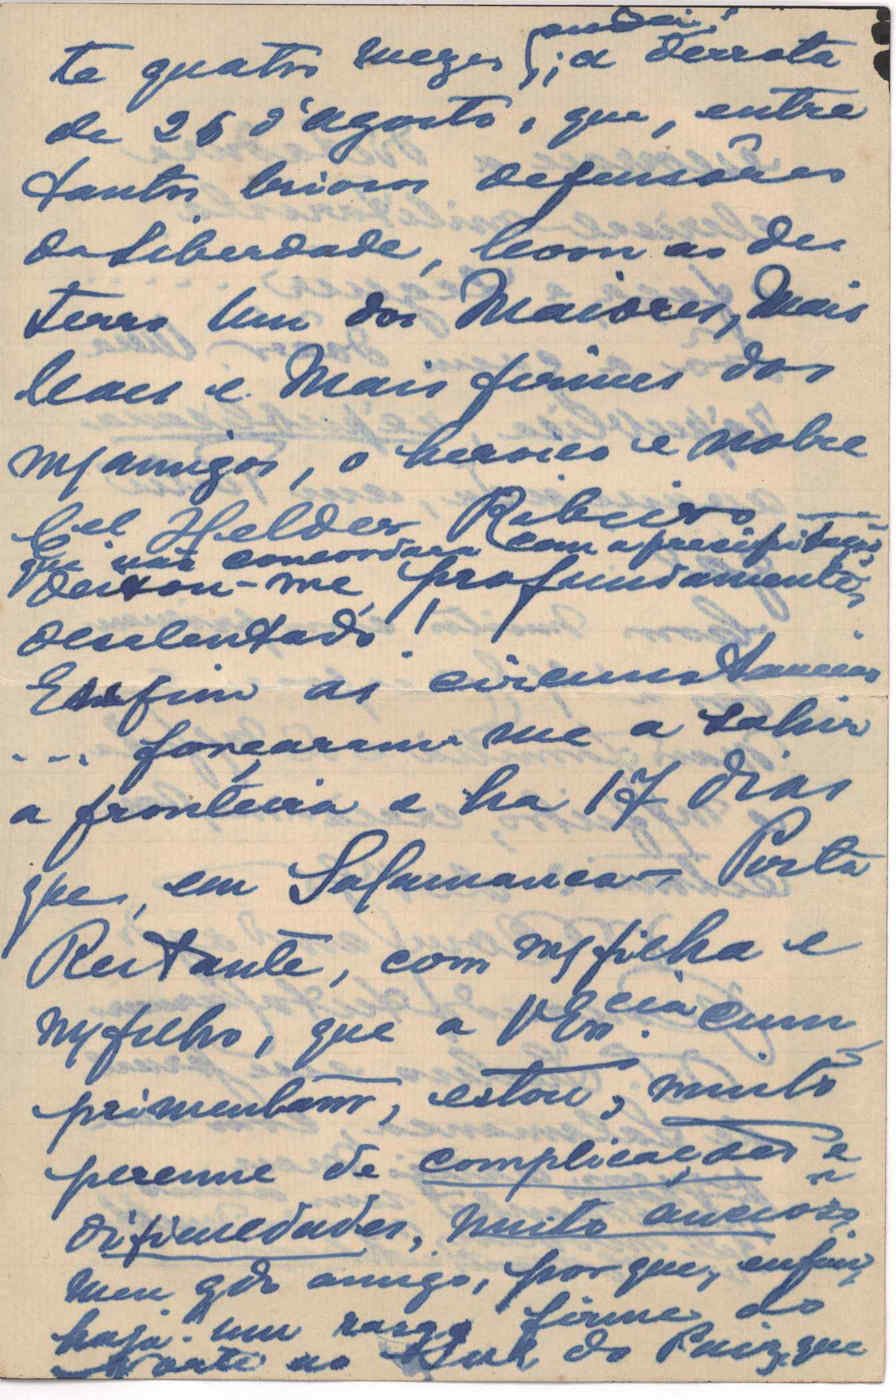 te quatro mezes ; a derrota
de 26 d'agosto, que, entre
tantos briosos defensôres
da Liberdade, levou ao des
terro um dos Maiores, Mais
leaes e Mais firmes dos
mys amigos, o heroico e nobre
Cel Helder Ribeiro
que não concordara com a precipitação
deixou-me, profundamente,
desalentado!
Enfim as circumstancias
... forçaram-me a sahir
a fronteira e ha 17 dias
que, em Salamanca - Posta
Restante, com my filha e
my filho, que a V. Excia. cum
primentam, estou, muito
perenne de complicações e
dificuldades, muito ancioso
meu gdo amigo, por que, enfim,
haja um rasgo firme do
Norte ao Sul do Paiz, que